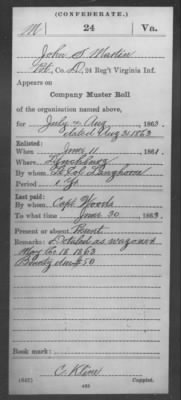 (CONFEDERATE.)
M 24 Va.
John S. Martin
Pvt, Co. D, 24 Reg't Virginia Inf.
Appears on
Company Muster Roll
of the organization named above,
for July & Aug, 1863.
dated Aug 31 1863
Enlisted:
When June 11, 1861.
Where Lynchburg
By whom Lt Col Langhorne
Period 1 yr
Last paid:
By whom Capt Woods
To what time June 30, 1863.
Present or absent Present
Remarks: Detailed as wagoner
Bounty due $50
Book mark:
(642) C. Kline
Copyist.